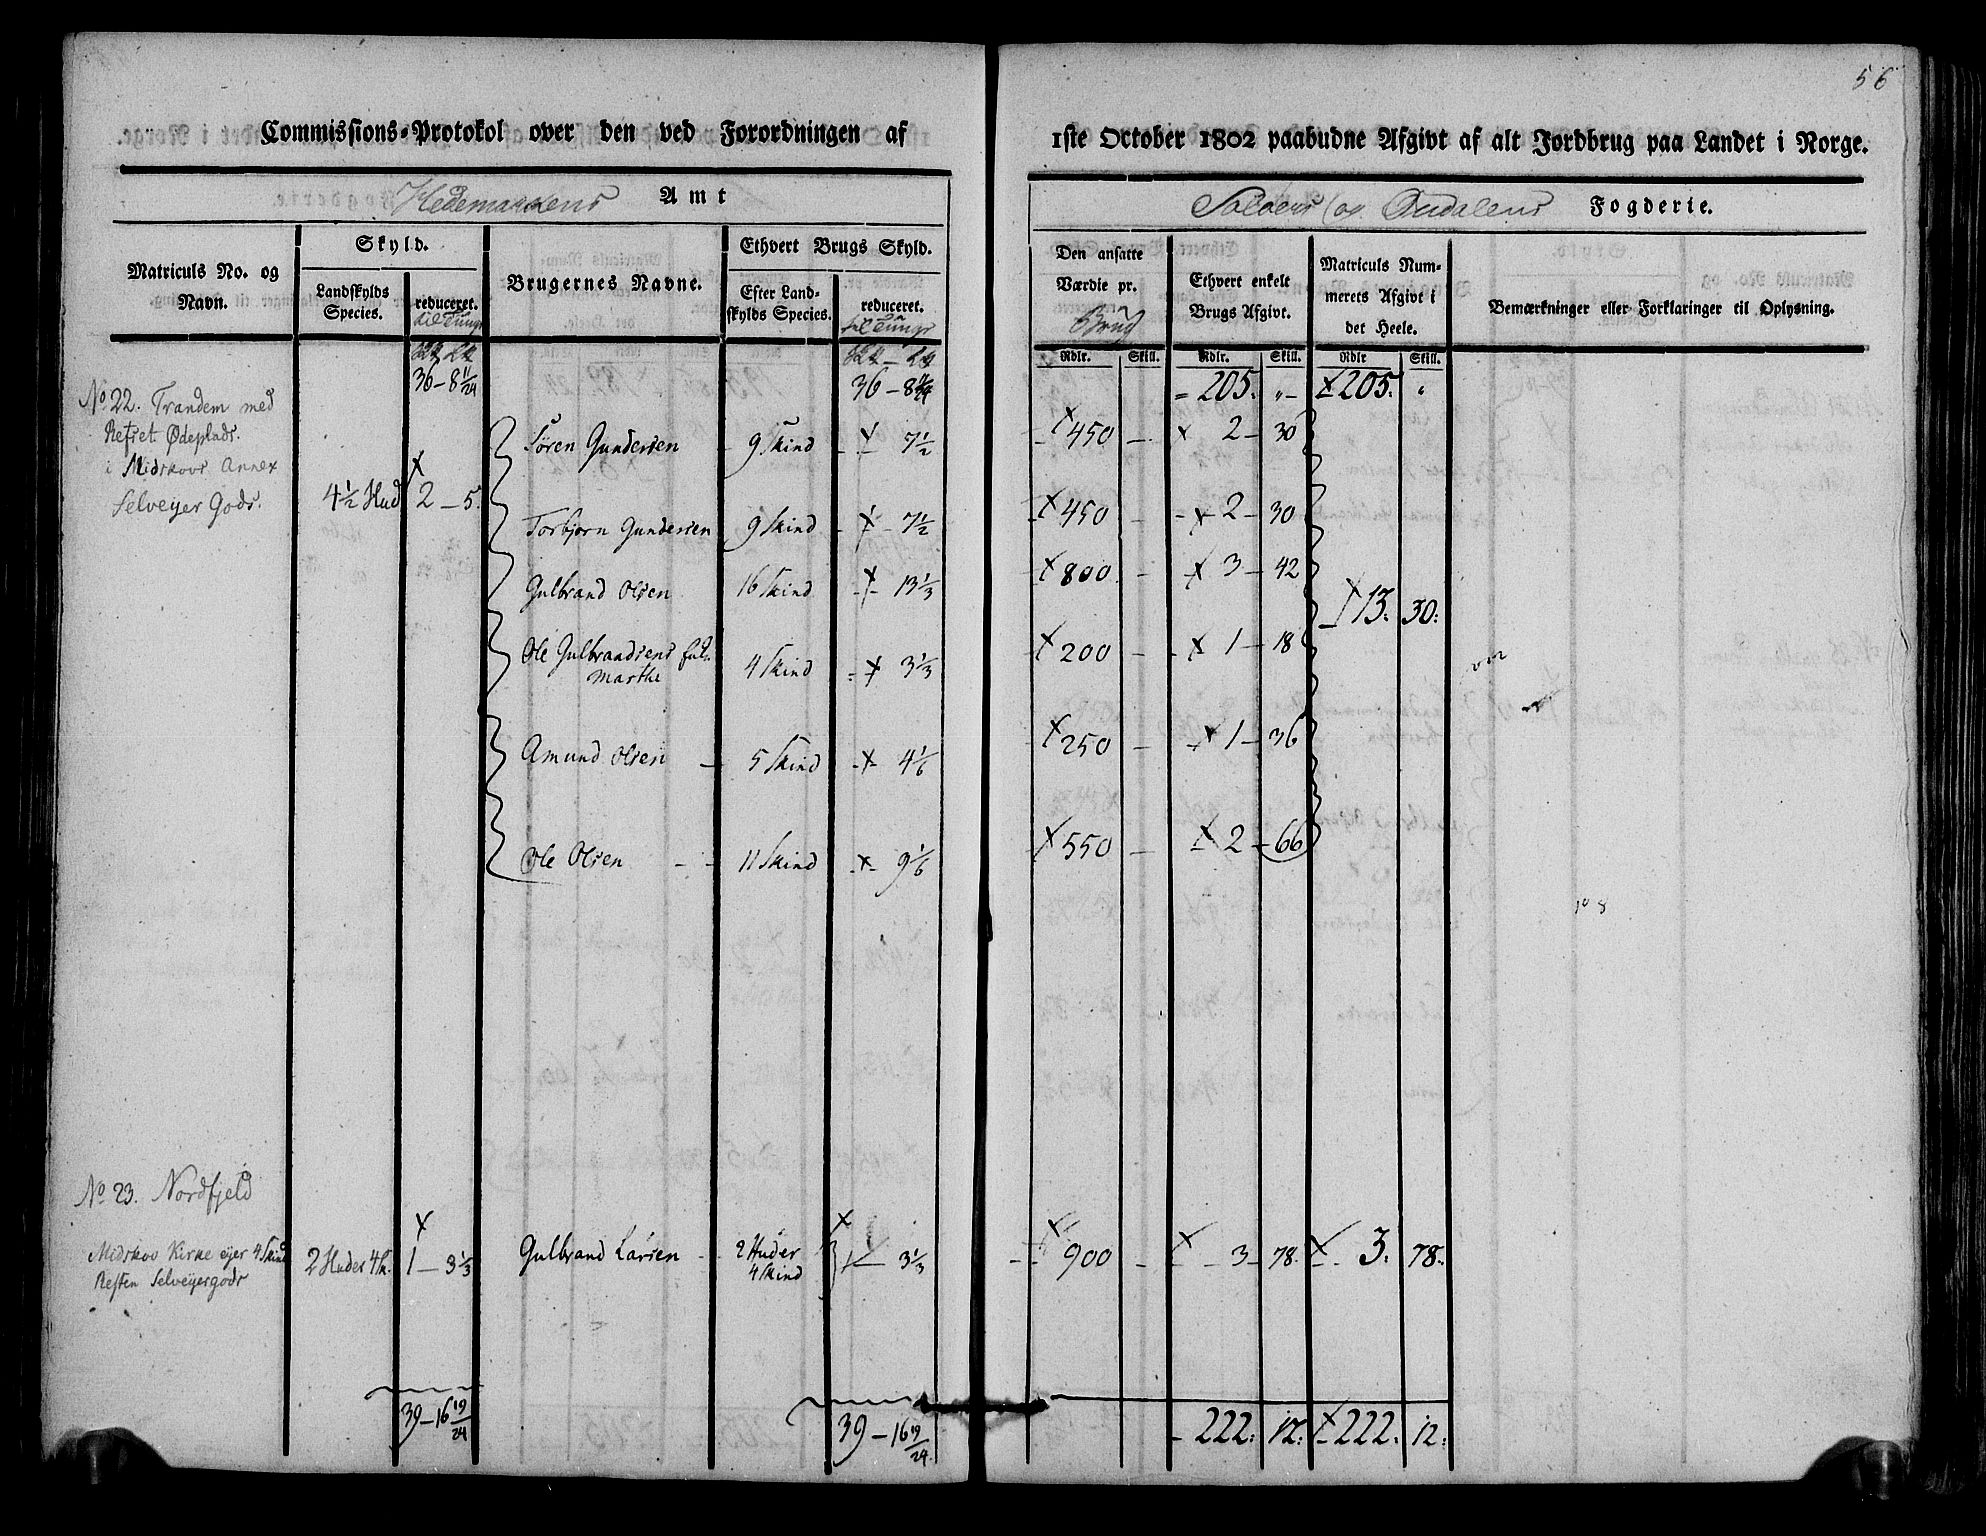 56
Commissions-Protokol over den ved Forordningen af
1ste October 1802 paabudne Afgivt af alt Jordbrug paa Landet i Norge.
Hedemarkens Amt
Soløers og Oudalens Fogderie.
Matriculs No. og Navn.
Skyld.
Landskylds Species.
reduceret.
til Tunge
Brugernes Navne.
Ethvert Brugs Skyld.
Efter Landskylds Species.
reduceret.
til Tunge
Den ansatte Værdie pr.
Brug
Ethvert enkelt Brugs Afgivt.
Matriculs Nummerets Afgivt i det Heele.
Bemærkninger eller Forklaringer til Oplysning.
Rdlr. Skill. Rdlr. Skill. Rdlr Skill.
36 – 8 11/24 36 – 8 11/24 = 205. "– 205. "
No 22. Trandem med
Refset Ødeplads.
i Midskovs Annex
Selveyer Gods.
4½ Hud 2 – 5.
Søren Gundersen – 9 Skind – 7½ 450 – 2 – 30
Torbjørn Gundersen 9 Skind – 7½ 450 – 2 – 30
Gulbrand Olsen 16 Skind – 13⅓ 800 – 3 – 42
13. 30.
Ole Gulbrandsens
Marthe 4 Skind 3⅓ 200 – 1 – 18
Amund Olsen – 5 Skind 4⅙ 250 – 1 – 36
Ole Olsen – – 11 Skind 9⅙ 550 – 2 – 66
108
No 23. Nordfjeld
Midskov Kirke ejer 4 Skind
Resten Selveyergods
2 Huder 4 Sk. 1 – 3⅓
Gulbrand Larsen – 2 Huder
4 Skind
1 – 3⅓ 900 – 3 – 78. 3. 78.
39 – 16 19/24 39 – 16 19/24. 222. 12. 222. 12.